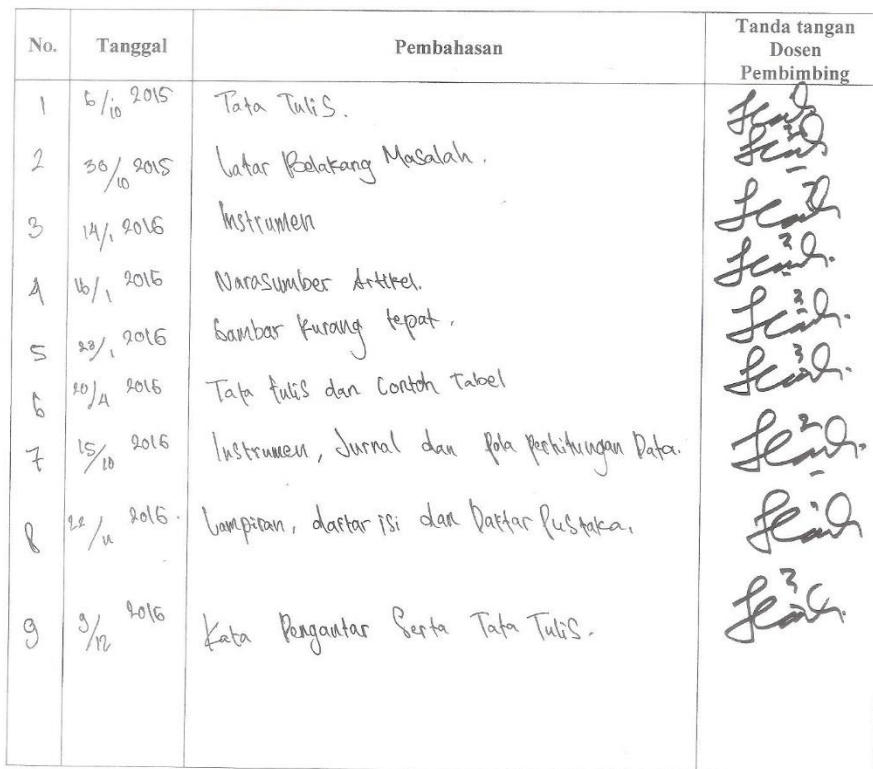 No. Tanggal Pembahasan Tanda tangan
Dosen
Pembimbing
1 6/10 2015 Tata Tulis.
2 30/10 2015 Latar Belakang Masalah.
3 14/1 2016 Instrumen
4 16/1 2016 Narasumber Artikel.
5 23/1 2016 Gambar kurang tepat.
6 20/4 2016 Tata tulis dan Contoh Tabel
7 15/10 2016 Instrumen, Jurnal dan Pola Perhitungan Data.
8 22/11 2016. Lampiran, daftar isi dan Daftar Pustaka.
9 9/12 2016 Kata Pengantar Serta Tata Tulis.